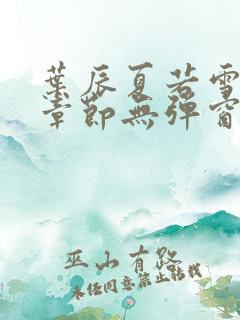 葉辰夏若雪
章節無彈窗
巫山有路
未任同意禁止轉載